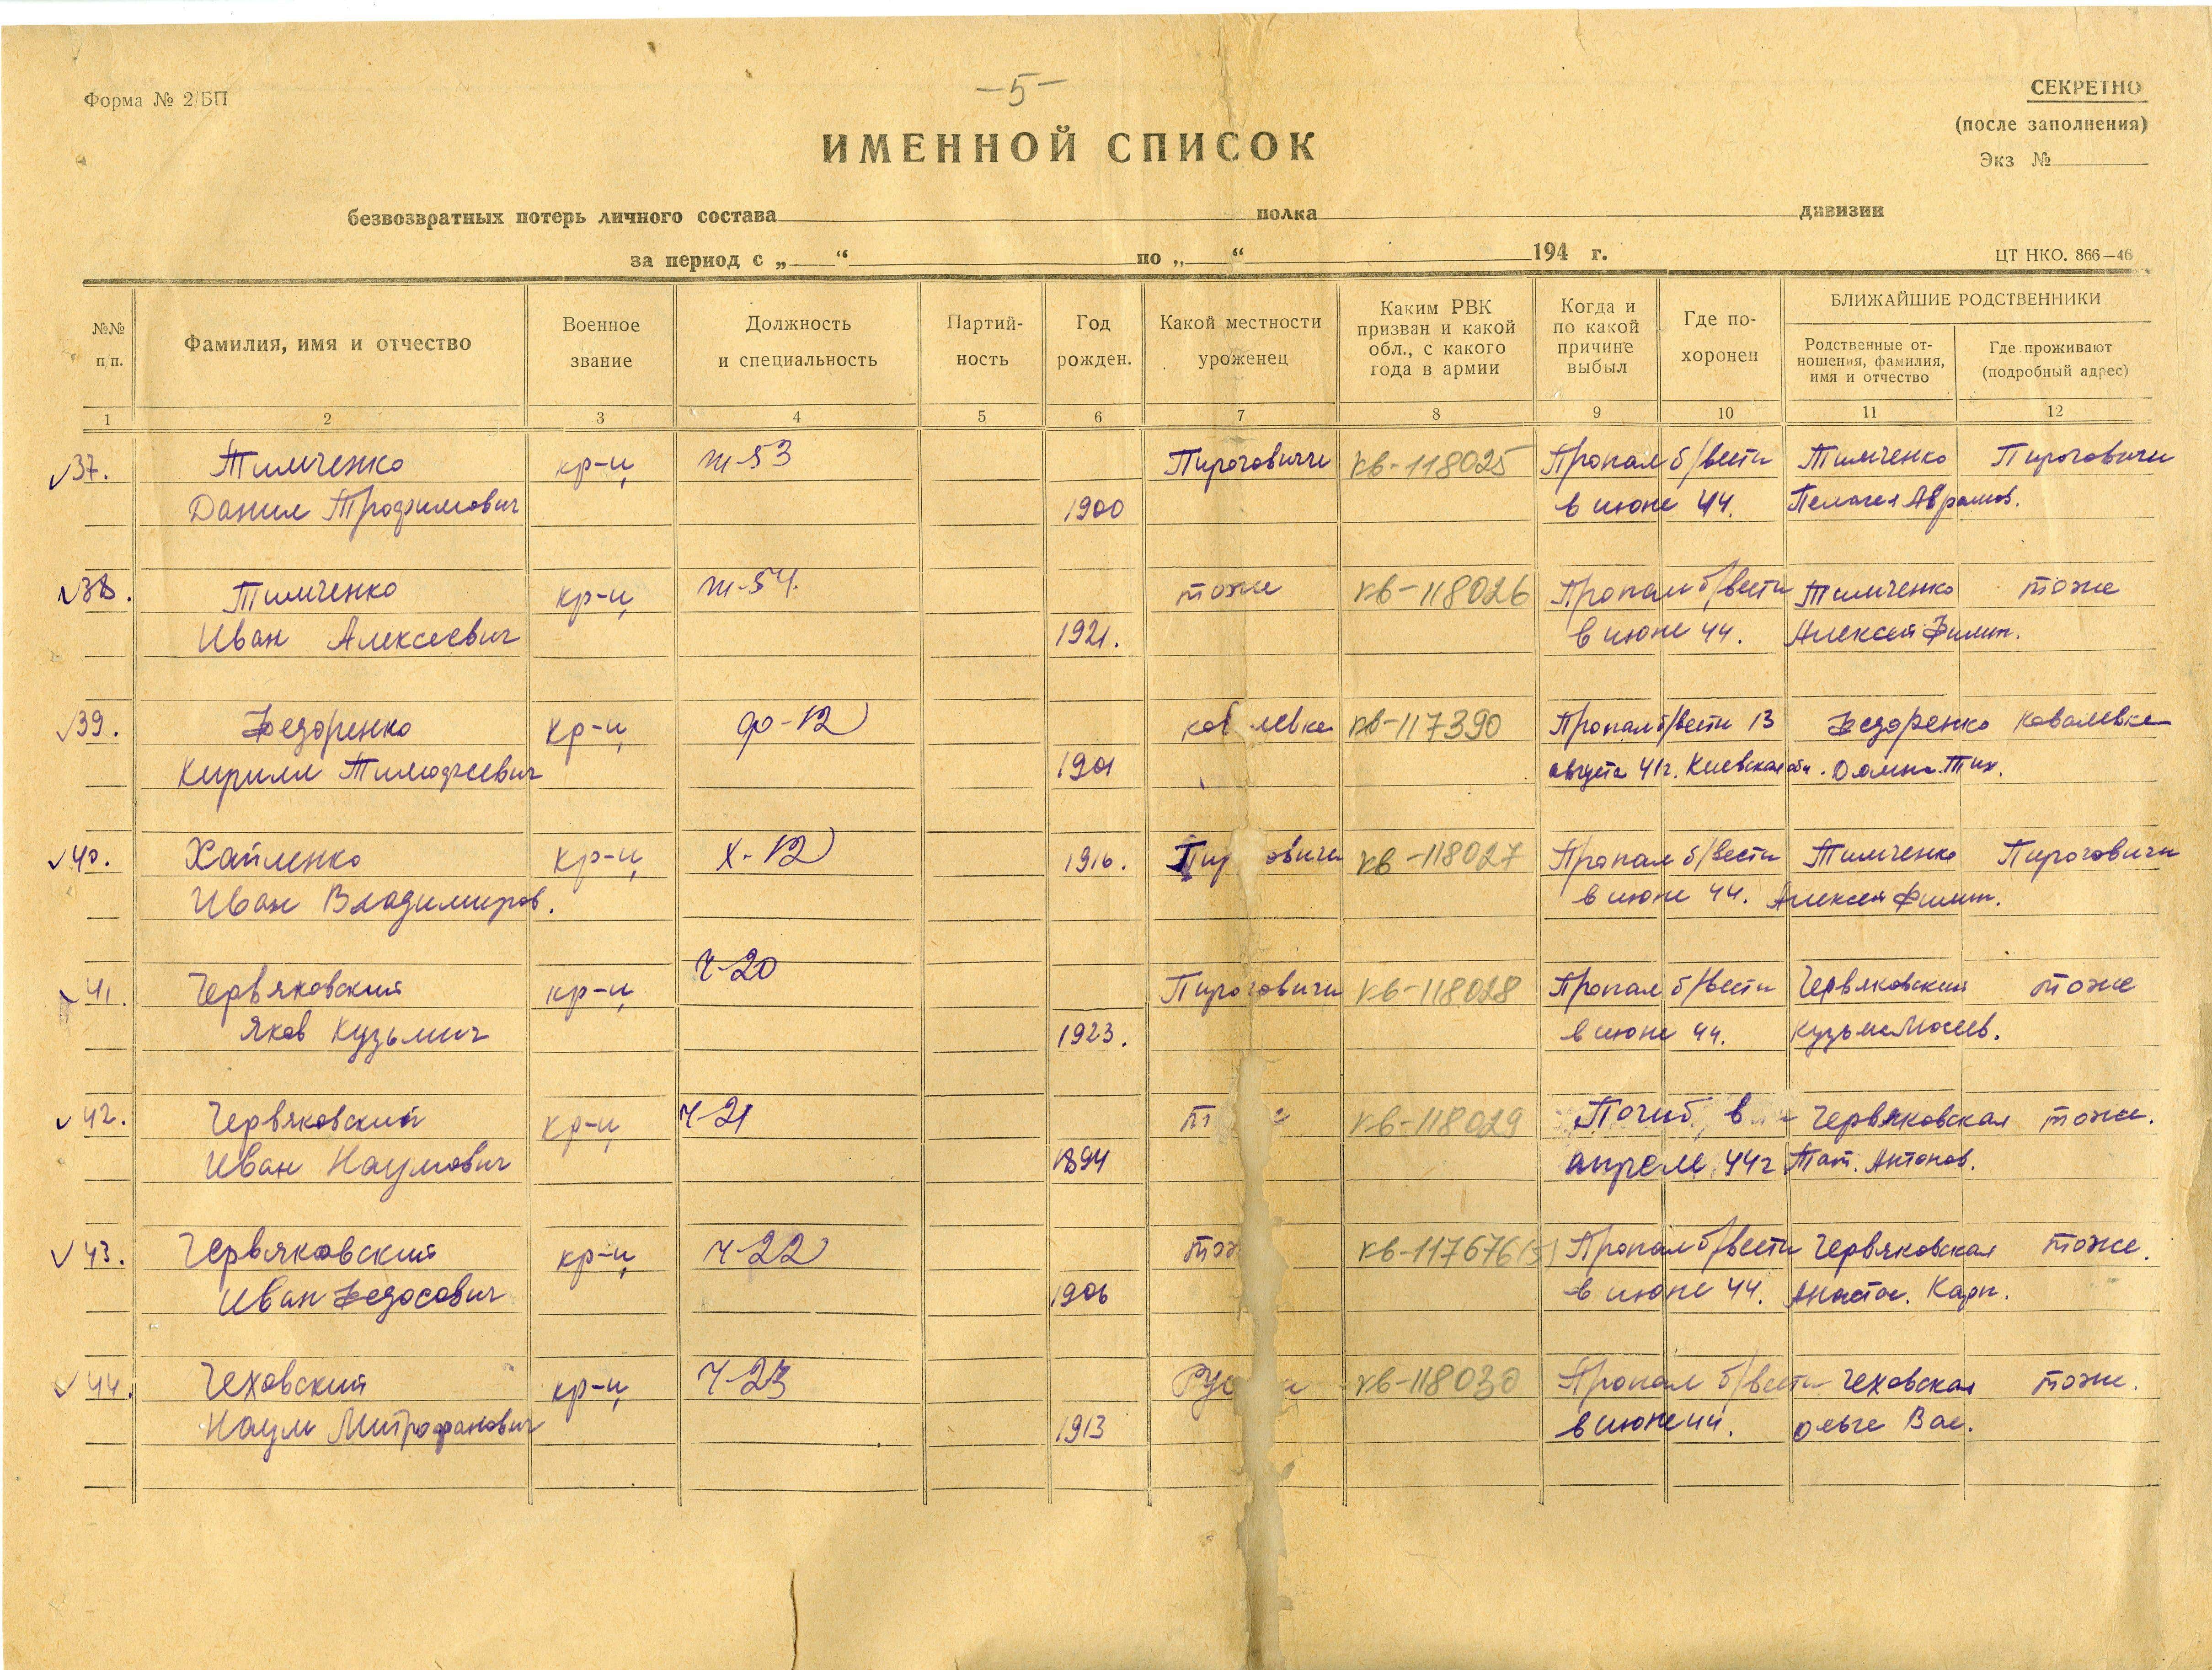 Форма № 2/БП
—5—
СЕКРЕТНО
(после заполнения)
Экз №
ИМЕННОЙ СПИСОК
безвозвратных потерь личного состава полка дивизии
за период с „ “ по „ “ 194 г.
ЦТ НКО. 866—46
№№ п/п. Фамилия, имя и отчество Военное звание Должность и специальность Партий-ность Год рожден. Какой местности уроженец Каким РВК призван и какой обл., с какого года в армии Когда и по какой причине выбыл Где по-хоронен БЛИЖАЙШИЕ РОДСТВЕННИКИ
Родственные от-ношения, фамилия, имя и отчество Где проживают (подробный адрес)
1 2 3 4 5 6 7 8 9 10 11 12
37. Тимченко кр-ц т-53 Пироговичи кв-118025 Пропал б/вести Тимченко Пироговичи
Данил Трофимович 1900 в июне 44. Пелагея Аврамов.
38. Тимченко кр-ц т-54. тоже кв-118026 Пропал б/вести Тимченко тоже
Иван Алексеевич 1921. в июне 44. Алексей Филип.
39. Федоренко кр-ц ф-12 ков левка кв-117390 Пропал б/вести 13 Федоренко Ковалевка
Кирилл Тимофеевич 1901 августа 41г. Киевская обл. Домна Тих.
40. Хайленко кр-ц х-12 1916. Пир овичи кв-118027 Пропал б/вести Тимченко Пироговичи
Иван Владимиров. в июне 44. Алексей Филип.
41. Червяковский кр-ц ч-20 Пироговичи кв-118028 Пропал б/вести Червяковский тоже
Яков Кузьмич 1923. в июне 44. Кузьма Мосеев.
42. Червяковский кр-ц ч-21 т е кв-118029 Погиб в Червяковская тоже.
Иван Наумович 1894 апреле 44г. Тат. Антонов.
43. Червяковский кр-ц ч-22 тож Пропал б/вести Червяковская тоже.
Иван Федосович 1906 в июне 44. Анастас. Карп.
44. Чеховский кр-ц ч-23 кв-118030 Пропал б/вести Чеховская тоже.
Наум Митрофанович 1913 в июне 44. Ольга Вас.